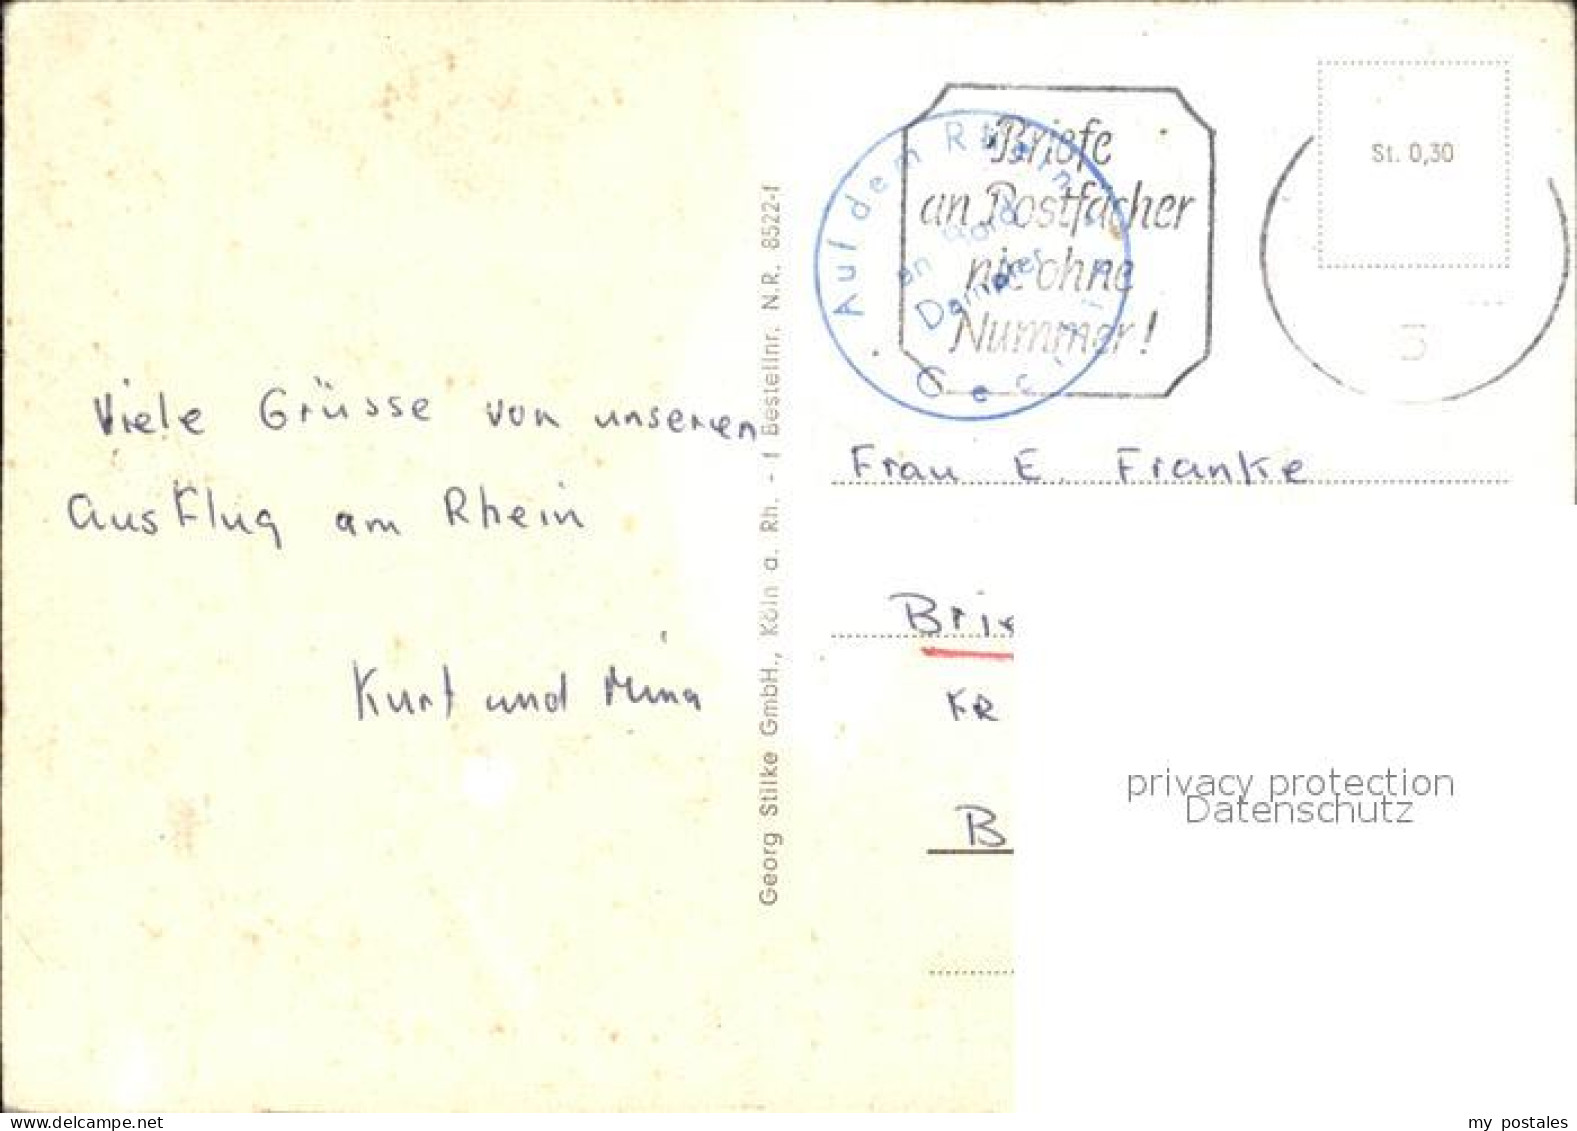 Viele Grüsse von unseren
Ausflug am Rhein
Kurt und Mina
Georg Stilke GmbH., Köln a. Rh. - f Bestellnr. N.R. 8522-f
Briefe
an Postfächer
nie ohne
Nummer!
Auf dem Rhein
an Bord
Dampfer
St. 0,30
Frau E. Franke
FR
B
privacy protection
Datenschutz
delcampe.net
my postales